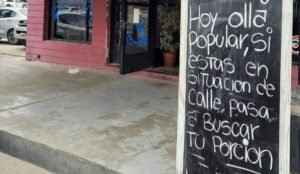 Hoy olla
popular, si
estas en
situacion de
calle, pasa
a Buscar
tu porcion